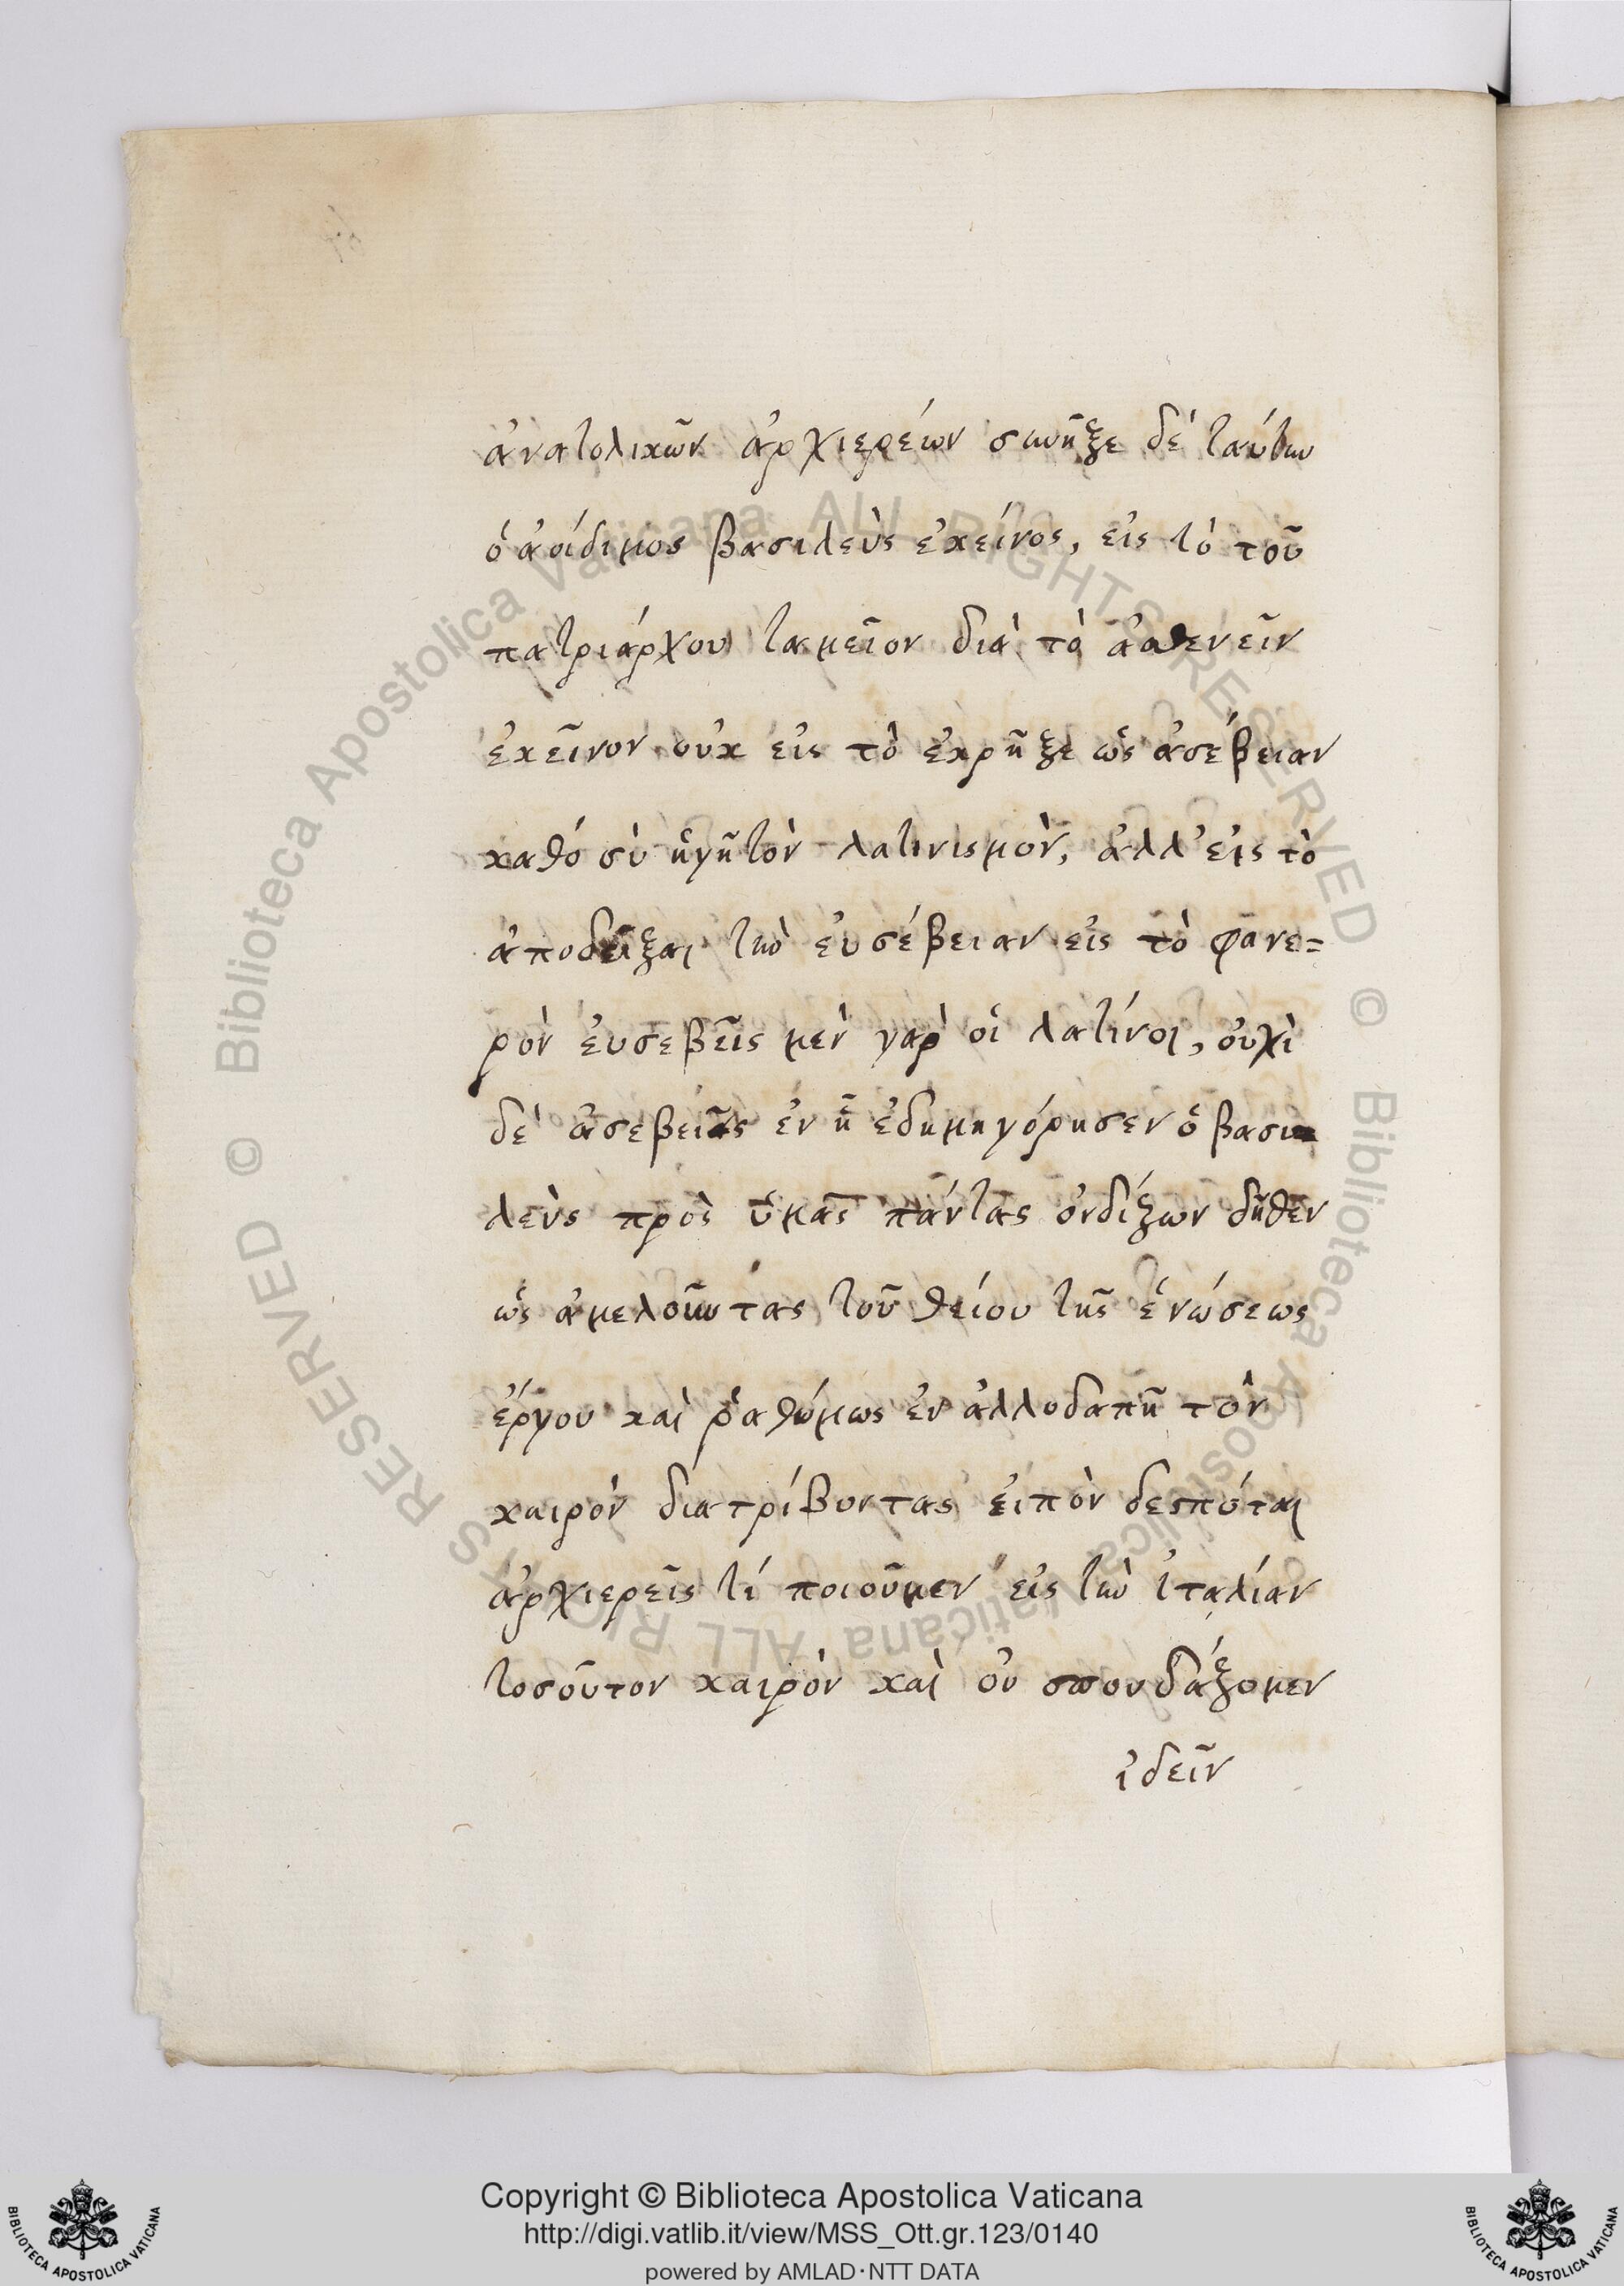 ἀνατολικῶν ἀρχιερέων συνῆξε δὲ ταύτην
ὁ ἀοίδιμος βασιλεὺς ἐκεῖνος, εἰς τὸ τοῦ
πατριάρχου ταμεῖον διὰ τὸ ἀσθενεῖν
ἐκεῖνον οὐκ εἰς τὸ ἐκρῆξε ὡς ἀσέβειαν
καθό σὺ ἡγῆ τὸν λατινισμὸν, ἀλλ' εἰς τὸ
ἀποδεῖξαι τὴν εὐσέβειαν εἰς τὸ φανε=
ρὸν ἐυσεβεῖς μὲν γαρ οἱ λατίνοι, οὐχὶ
δὲ ἀσεβεῖς ἐν ᾗ ἐδημηγόρησεν ὁ βασι=
λεὺς πρὸς ὑμᾶς πάντας ὀνδίζων δῆθεν
ὡς ἀμελοῦντας τοῦ θείου τῆς ἑνώσεως
ἔργου καὶ ῥαθύμως ἐν ἀλλοδαπῇ τὸν
καιρὸν διατρίβοντας εἰπὸν δεσπόται
ἀρχιερεῖς τί ποιοῦμεν εἰς τὴν ἰταλίαν
τοσοῦτον καιρὸν καὶ οὐ σπουδάζομεν
ἰδεῖν
Copyright © Biblioteca Apostolica Vaticana
http://digi.vatlib.it/view/MSS_Ott.gr.123/0140
powered by AMLAD·NTT DATA